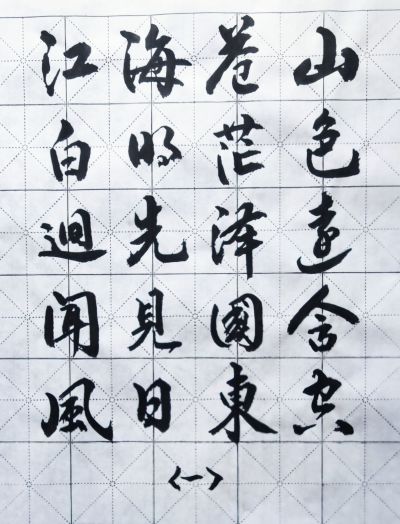 山色遠含空
蒼茫澤國東
海明先見日
江白迴聞風
<一>